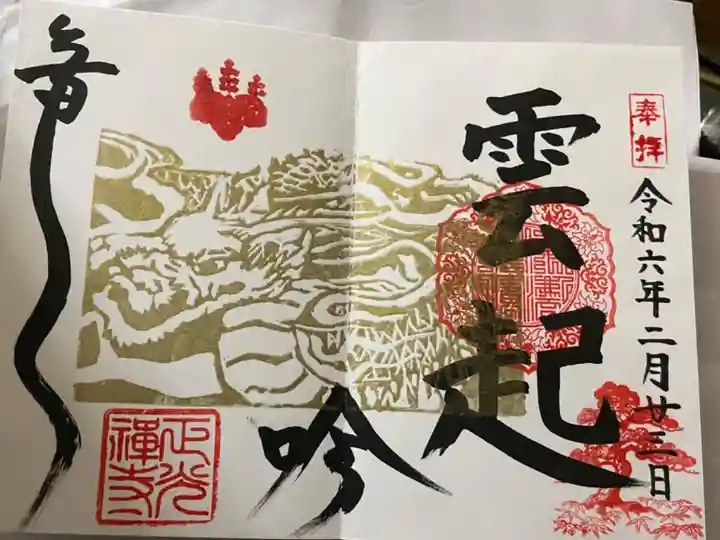 奉拝
令和六年二月廿三日
雲起
吟
竜
正光
禪寺